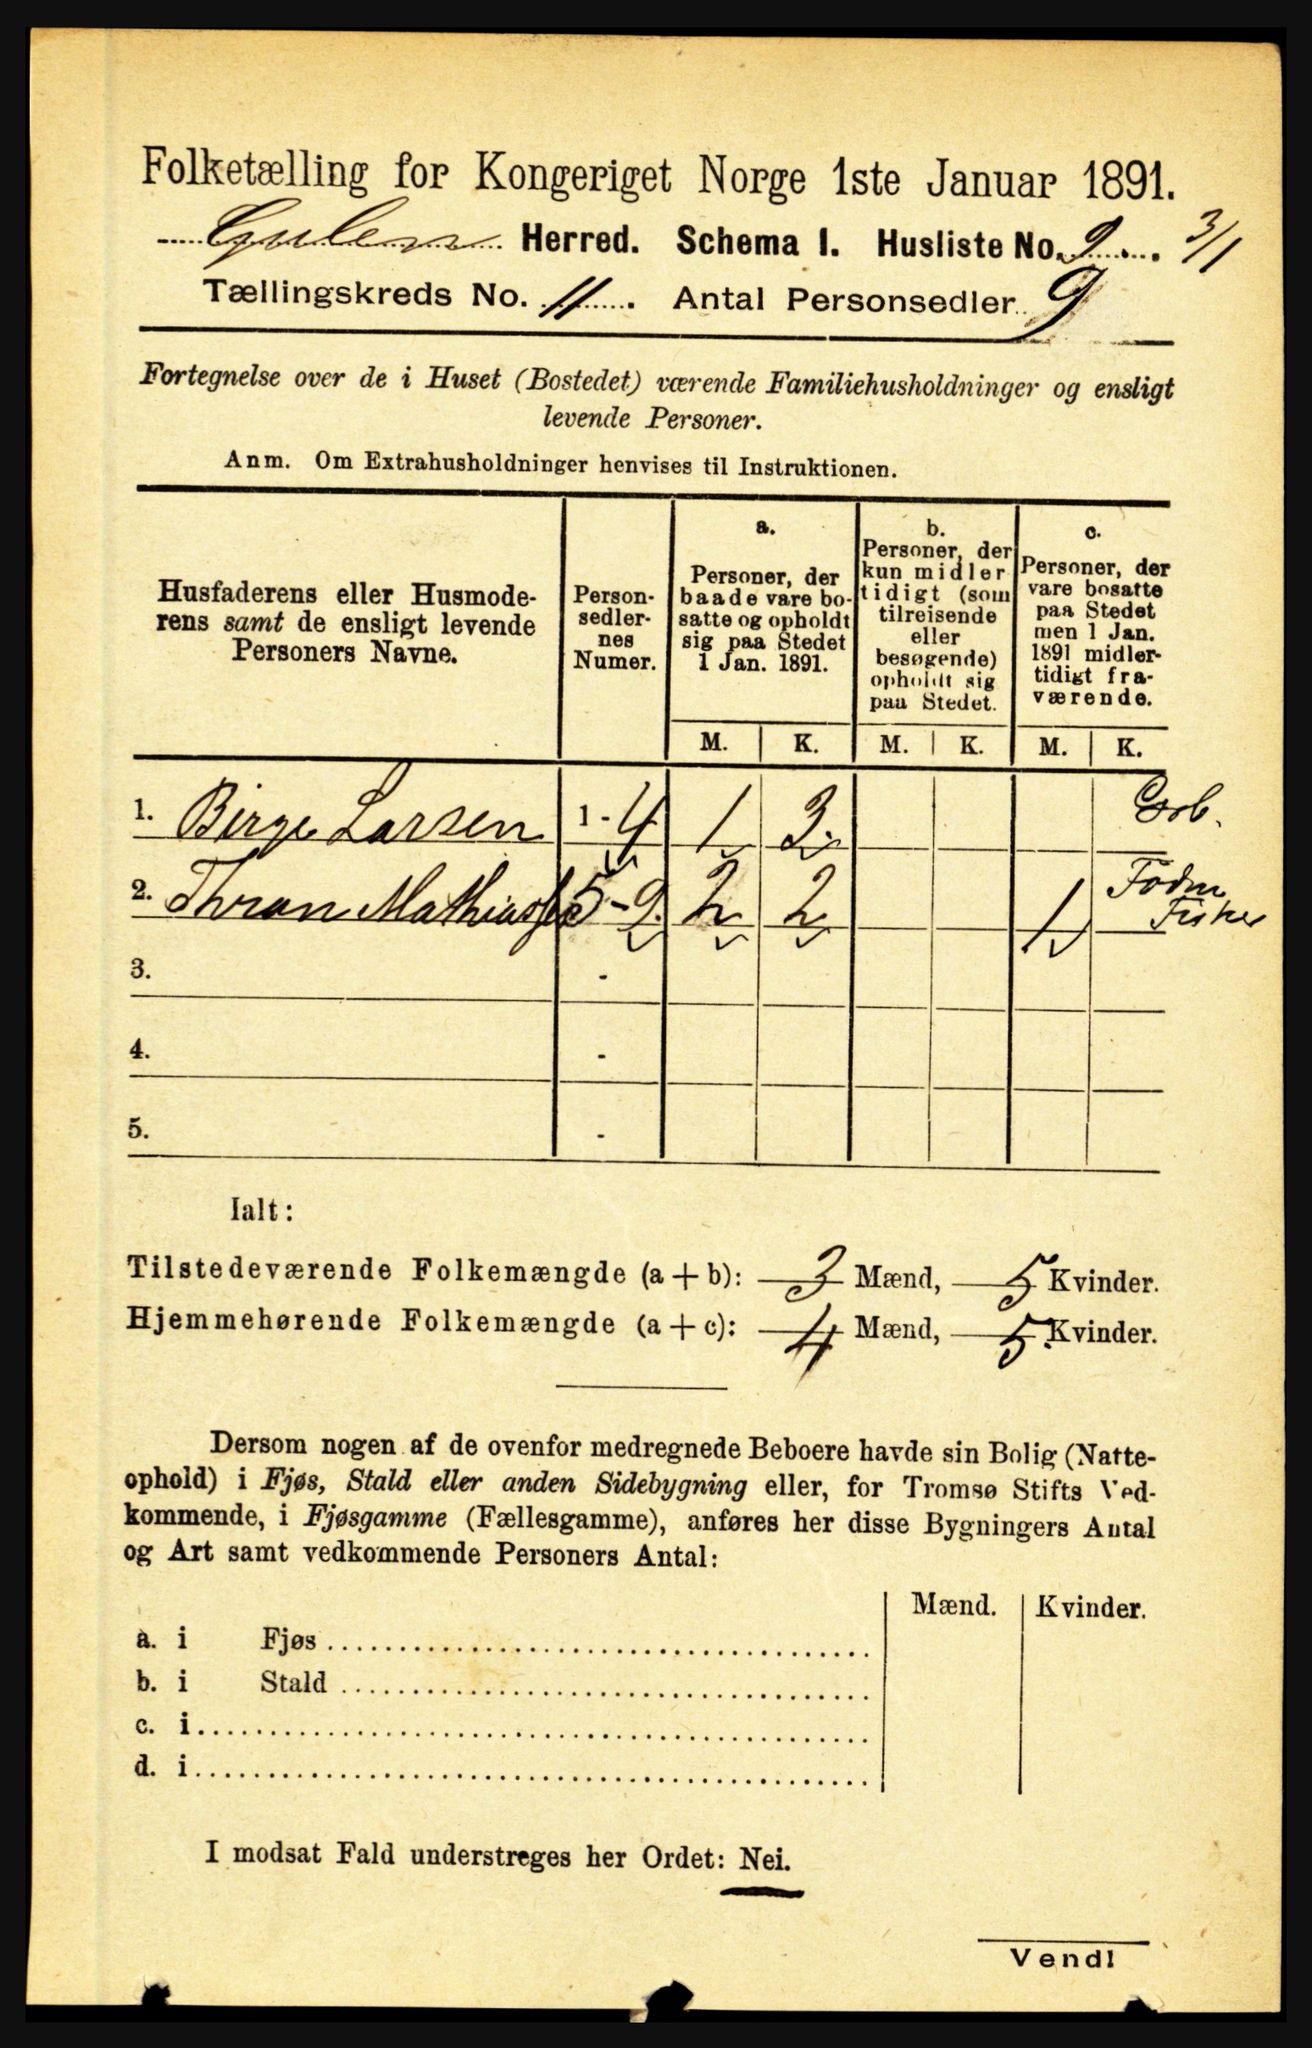 Folketælling for Kongeriget Norge 1ste Januar 1891.
Gulen Herred. Schema I. Husliste No. 9 3/1
Tællingskreds No. 11. Antal Personsedler 9
Fortegnelse over de i Huset (Bostedet) værende Familiehusholdninger og ensligt
levende Personer.
Anm. Om Extrahusholdninger henvises til Instruktionen.
Husfaderens eller Husmode-
rens samt de ensligt levende
Personers Navne.
Person-
sedler-
nes
Numer.
a.
Personer, der
baade vare bo-
satte og opholdt
sig paa Stedet
1 Jan. 1891.
b.
Personer, der
kun midler
tidigt (som
tilreisende
eller
besøgende)
opholdt sig
paa Stedet.
c.
Personer, der
vare bosatte
paa Stedet
men 1 Jan.
1891 midler-
tidigt fra-
værende.
M. K. M. K. M. K.
1. Birge Larsen 1 - 4 1 3
2. Thron Mathias 5 - 9. 2 2 1 Fisker
3. -
4. -
5. -
Ialt:
Tilstedeværende Folkemængde (a + b): 3 Mænd, 5 Kvinder.
Hjemmehørende Folkemængde (a + c): 4 Mænd, 5 Kvinder.
Dersom nogen af de ovenfor medregnede Beboere havde sin Bolig (Natte-
ophold) i Fjøs, Stald eller anden Sidebygning eller, for Tromsø Stifts Ved-
kommende, i Fjøsgamme (Fællesgamme), anføres her disse Bygningers Antal
og Art samt vedkommende Personers Antal:
Mænd. Kvinder.
a. i Fjøs
b. i Stald
c. i
d. i
I modsat Fald understreges her Ordet: Nei.
Vendl